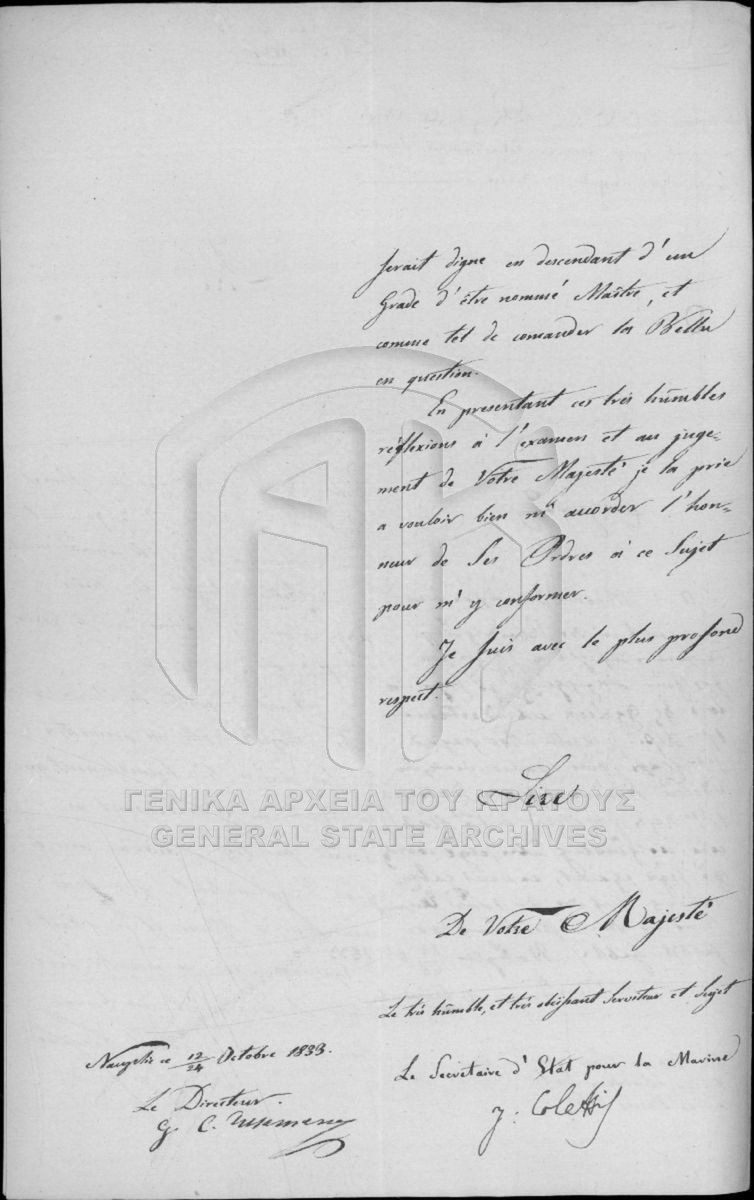 serait digne en descendant d'un
Grade d'être nommé Maître, et
comme tel de comander les
en question.
En presentant ces très humbles
réflexions à l'examen et au juge-
ment de Votre Majesté je la prie
a vouloir bien m'accorder l'hon-
neur de Ses Ordres à ce Sujet
pour m'y conformer.
Je suis avec le plus profond
respect.
Sire
ΓΕΝΙΚΑ ΑΡΧΕΙΑ ΤΟΥ ΚΡΑΤΟΥΣ
GENERAL STATE ARCHIVES
De Votre Majesté
Le très humble, et très obéissant Serviteur et Sujet
Nauplie ce 12/24 Octobre 1833.
Le Secrétaire d'Etat pour la Marine
Le Directeur.
J. Coletti
G. C.